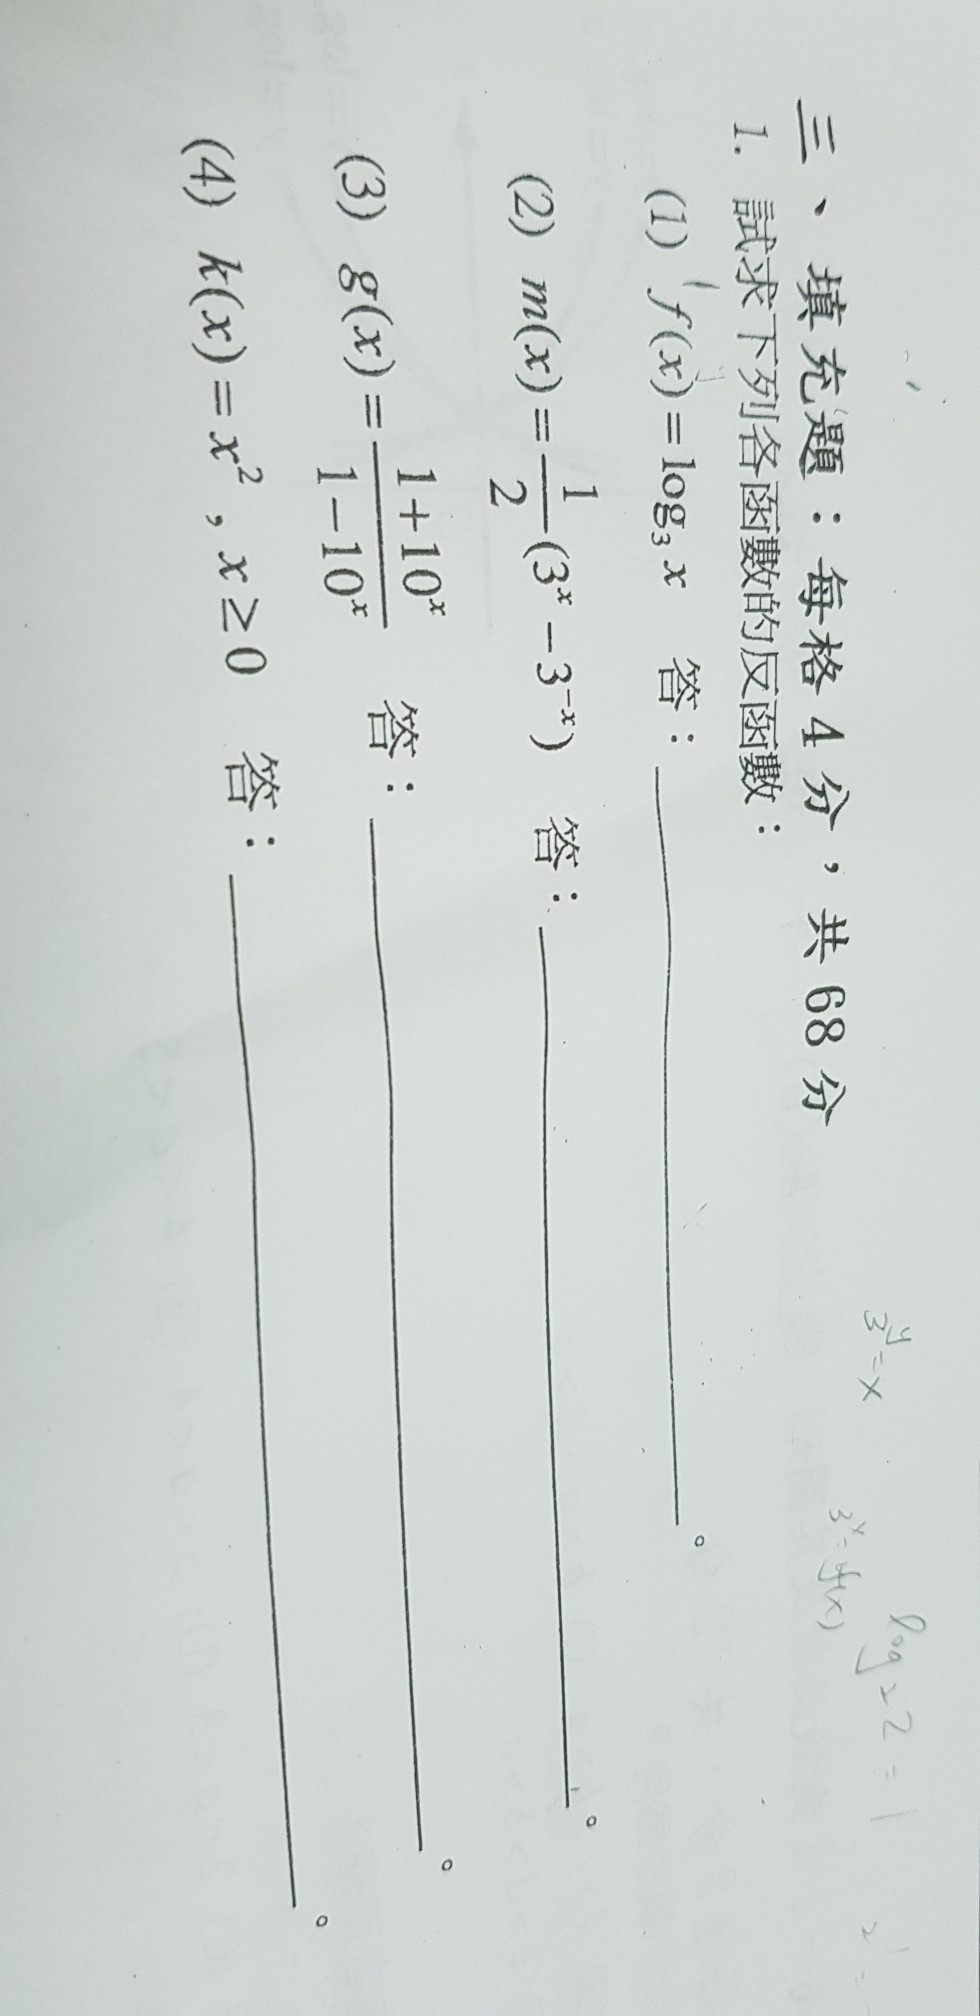 三、填充題：每格 4 分，共 68 分
1. 試求下列各函數的反函數：
(1) f(x)=log₃ x 答：________。
(2) m(x)=1/2(3ˣ−3⁻ˣ) 答：________。
(3) g(x)=(1+10ˣ)/(1−10ˣ) 答：________。
(4) k(x)=x²，x≥0 答：________。
3ʸ=x
log₂2=1